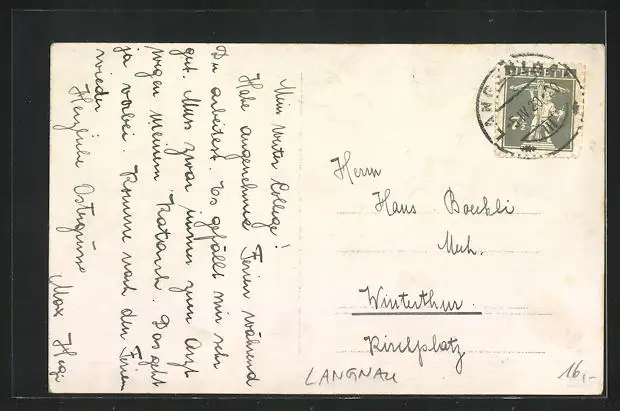 Mein werter College!
Habe angenehme Ferien während
Du arbeitest. Es gefällt mir sehr
gut. Muss zwar immer zum Arzt
wegen meinem Katarrh. Das geht
ja vorbei. Komme nach den Ferien
wieder
Herzliche Ostergrüsse
Max Hegi
HELVETIA
7½
LANGNAU
Herrn
Hans Boeckli
Mech.
Winterthur.
Kirchplatz
LANGNAU
16,-